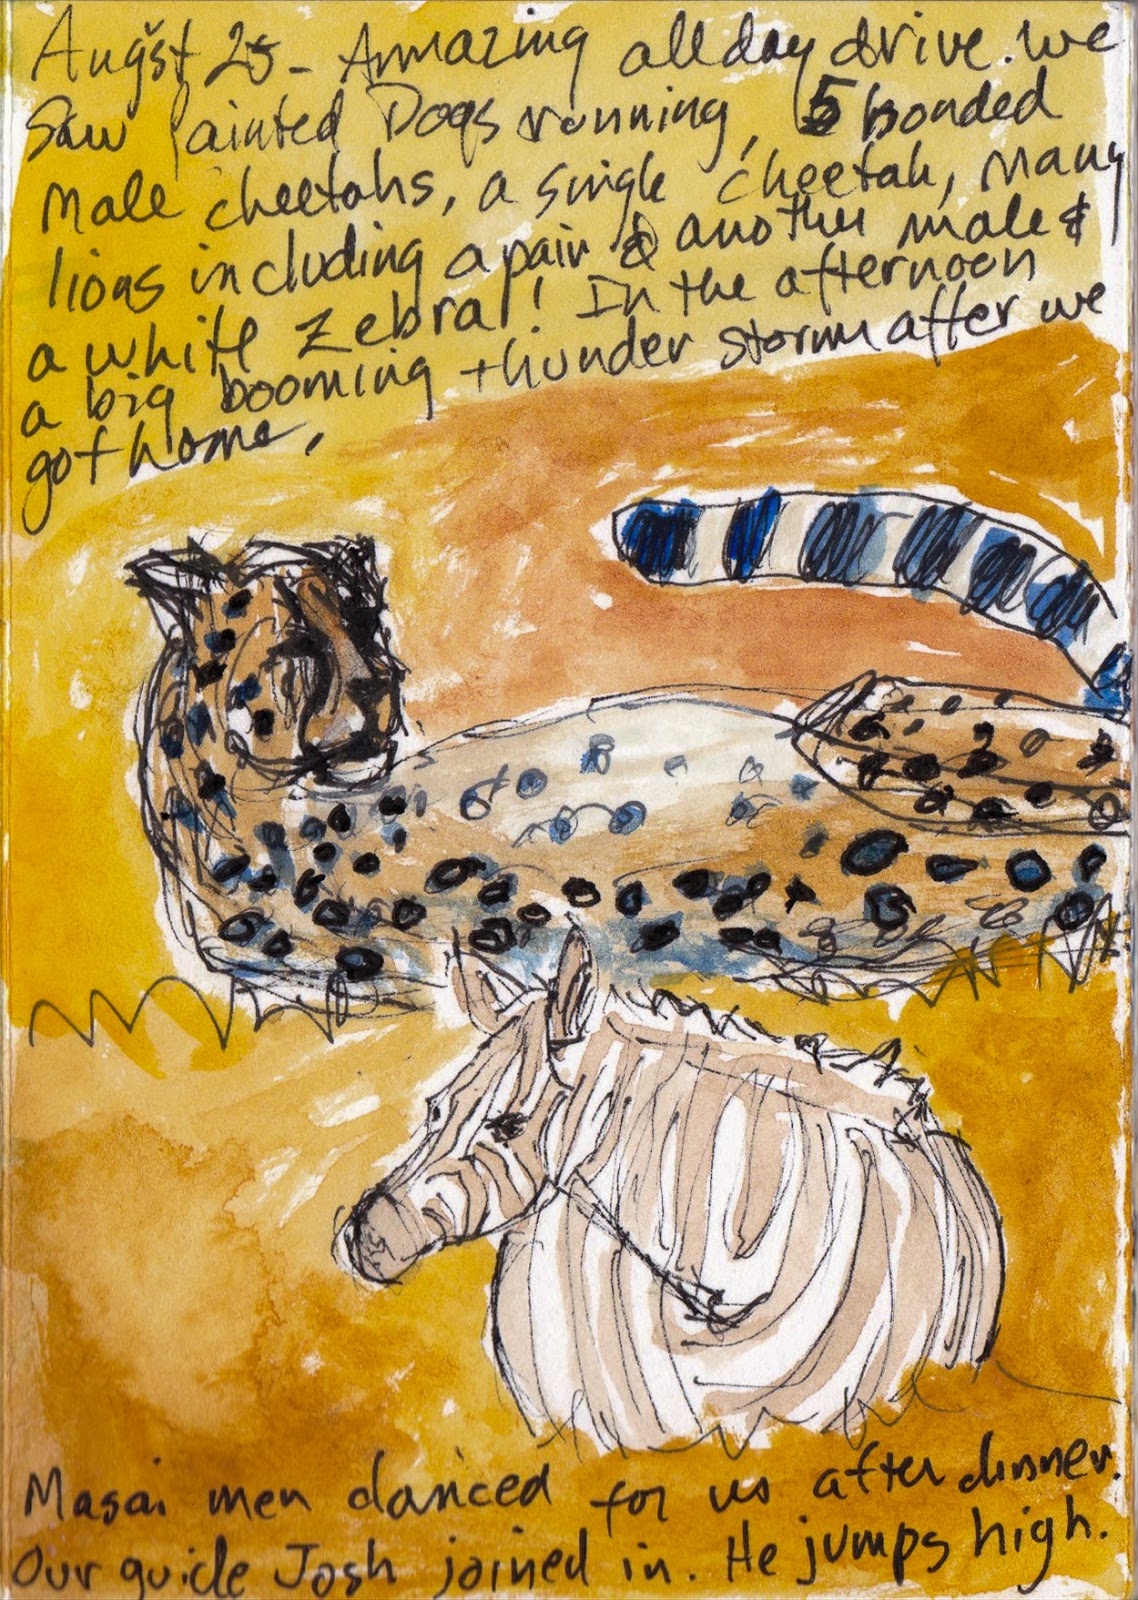 August 25 - Amazing all day drive. We
Saw Painted Dogs running, 5 bonded
Male cheetahs, a single cheetah, many
lions including a pair & another male &
a white Zebra! In the afternoon
a big booming thunder storm after we
got home.
Masai men danced for us after dinner.
Our guide Josh joined in. He jumps high.